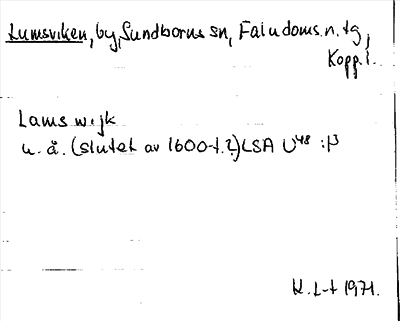 Lumsviken, by, Sundborns sn, Faludoms. n. tg,
Kopp. l.
Lams wijk
u. å. (slutet av 1600-t.?) LSA U48 :13
K. L-t 1971.